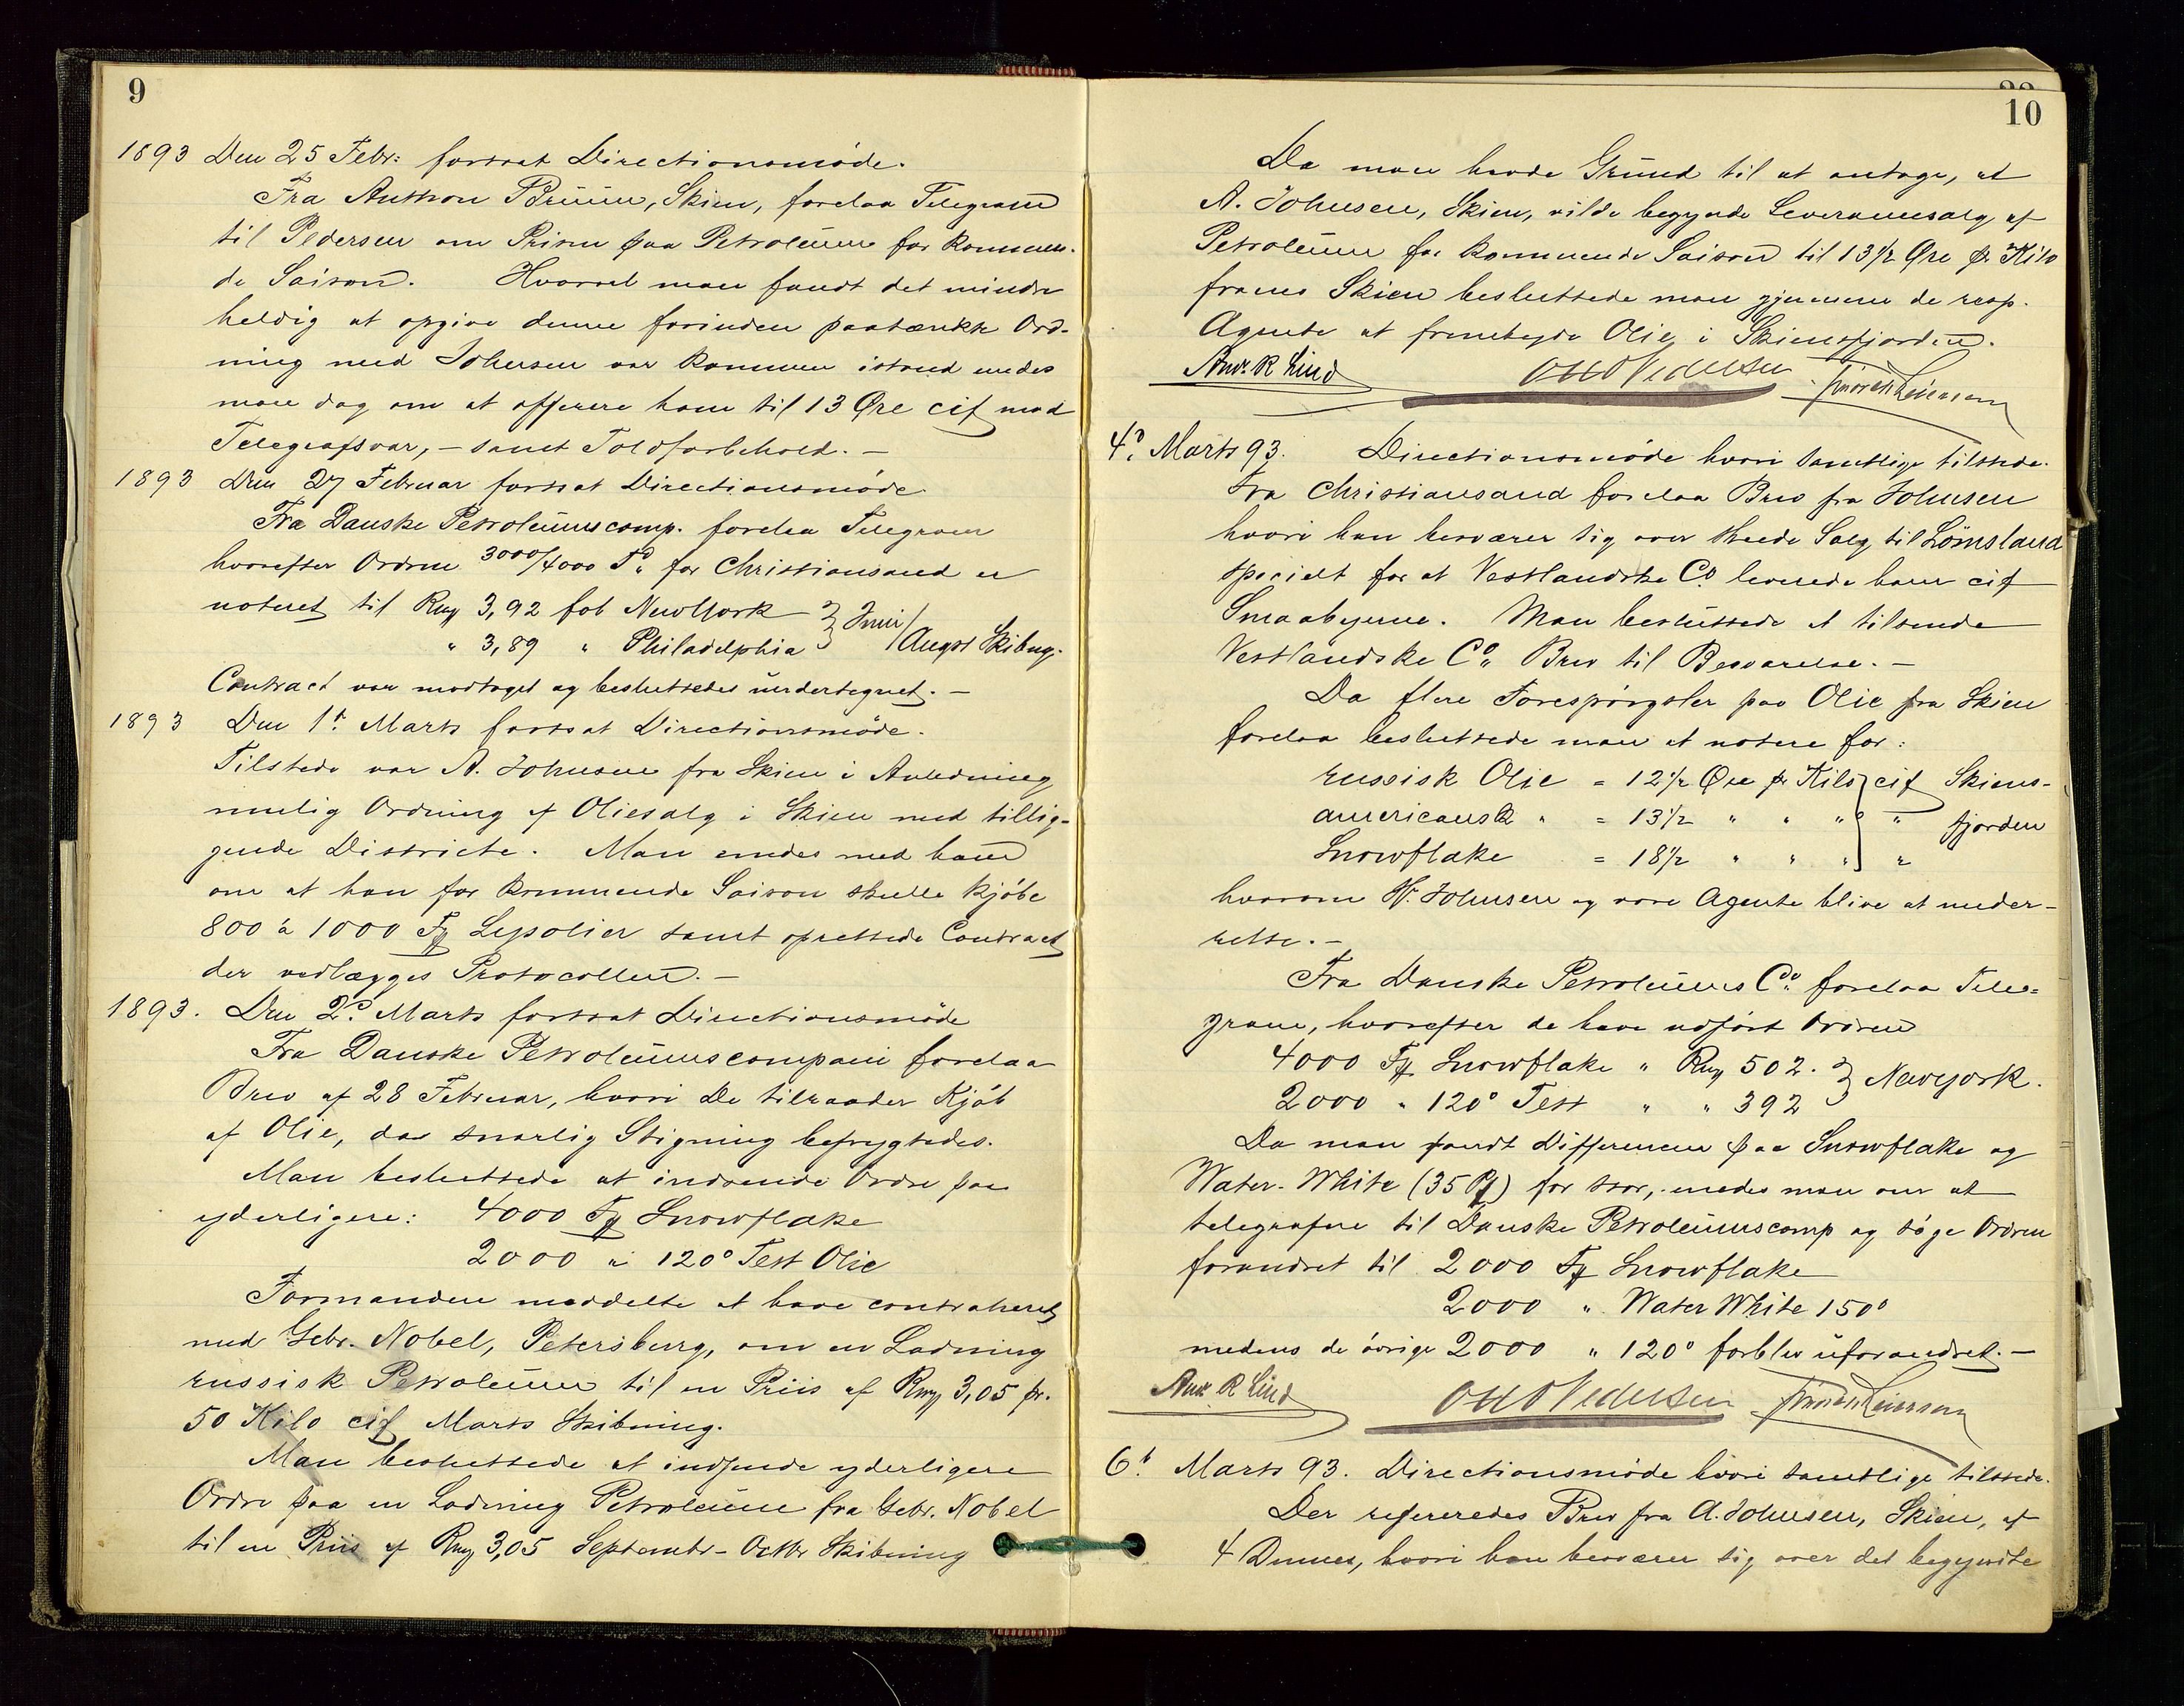 9
1893 Den 25 Febr: fortsat Directionsmöde.
Fra Anthon Bruun, Skien, forelaa Telegram
til Pedersen om Prisen paa Petroleum for kommen-
de Saison. Hvorvel man fandt det mindre
heldig at opgive denne forinden paatænkte Ord-
ning med Johnsen var kommen istand enedes
man dog om at offerere ham til 13 Øre cif mod
Telegrafsvar, – samt Toldforbehold. –
1893 Den 27 Februar fortsat Directionsmöde
Fra Danske Petroleumscomp. forelaa Telegram
hvorefter Ordren 3000/4000 for Christiansand er
noteret til Rmg 3,92 fob NewYork } Juni/
" 3,89 " Philadelphia } /Augst Skibng.
Contract var modtaget og besluttedes undertegnet. –
1893 Den 1ste Marts fortsat Directionsmöde.
Tilstede var A. Johnsen fra Skien i Anledning
mulig Ordning af Oliesalg i Skien med tillig-
gende Districte. Man enedes med ham
om at han for kommende Saison skulle kjöbe
800 à 1000 Fg Lysolier samt oprettede Contract
der vedlægges Protocollen. –
1893. Den 2d Marts fortsat Directionsmöde
Fra Danske Petroleumscompani forelaa
Brev af 28 Februar, hvori De tilraader Kjöb
af Olie, da snarlig Stigning befrygtedes.
Man besluttede at indsende Ordre paa
yderligere: 4000 Fg Snowflake
2000 " 120° Test Olie
Formanden meddelte at have contraheret
med Gebr. Nobel, Petersburg, om en Ladning
russisk Petroleum til en Priis af Rmg 3,05 pr.
50 Kilo cif Marts Skibning.
Man besluttede at indsende yderligere
Ordre paa en Ladning Petroleum fra Gebr. Nobel
til en Priis af Rmg 3,05 Septembr - Octbr Skibning
10
Da man havde Grund til at antage, at
A. Johnsen, Skien, vilde begynde Leverancesalg af
Petroleum for kommende Saison til 13½ Øre pr Kilo
franco Skien besluttede man gjennem de resp.
Agente at frembyde Olie i Skiensfjorden.
Andr. R Lind Otto Pedersen
4d Marts 93. Directionsmöde hvori samtlige tilstede.
Fra Christiansand forelaa Brev fra Johnsen
hvori han besværer sig over skeede Salg til Lömsland
specielt for at Vestlandske Co leverede ham cif
Smaabyerne. Man besluttede at tilsende
Vestlandske Co Brev til Besvarelse. –
Da flere Forespörgsler paa Olie fra Skien
forelaa besluttede man at notere for:
russisk Olie = 12½ Øre pr Kilo } cif Skiens-
americansk " = 13½ " " " } " fjorden
Snowflake = 18½ " " " } "
hvorom Hr. Johnsen og vore Agente blive at under-
rette. –
Fra Danske Petroleums Co forelaa Tele-
gram, hvorefter de have udfört Ordren
4000 Fg Snowflake " Rmg 502. } Newyork.
2000 " 120° Test " " 392 }
Da man fandt Differencen paa Snowflake og
Water-White (35 Pf) for stor, enedes man om at
telegrafere til Danske Petroleumscomp og söge Ordren
forandret til 2000 Fg Snowflake
2000 " Water White 150°
medens de övrige 2000 " 120° forblev uforandret. –
Andr. R Lind Otto Pedersen
6t Marts 93. Directionsmöde hvori samtlige tilstede.
Der refereredes Brev fra A. Johnsen, Skien, af
4 Dennes, hvori han besværer sig over det begyndte